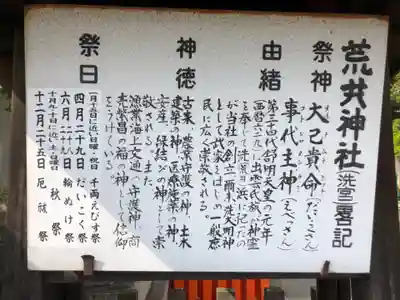 荒井神社(洗堂)畧記
祭神
大己貴命(だいこくさん)
事代主神(えべっさん)
由緒
第三十四代舒明天皇の元年
(西暦六二九)に出雲氏族の神霊
を奉じて
が当社の創立爾来荒大明神
として武家をはじめ一般庶
民に広く崇敬される。
神徳
古来、産業守護の神、土木
建築の神、医療医薬の神、
安産、縁結びの神として崇
敬される。また
漁業海上交通の守護神、商
売繁昌の福の神として信仰
をうけている。
祭日
一月十日に近い日曜・祝日 千両えびす祭
四月二十九日 だいこく祭
六月二十九日 輪ぬけ祭
十月九・十日に近い土・日曜日 秋祭
十二月二十五日 厄祓祭